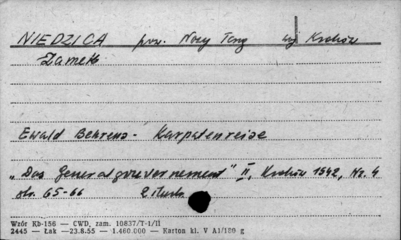 NIEDZICA pow. Nowy Targ woj Kraków
Zamek
Ewald Behrens - Karpatenreise
"Das Generalgouvernement" II, Kraków 1942, No. 4
str. 65-66 2 ilustr.
Wzór Kb-156 — CWD, zam. 10837/T-1/II
2445 — Łak — 23.8.55 — 1.460.000 — Karton kl. V A1/180 g